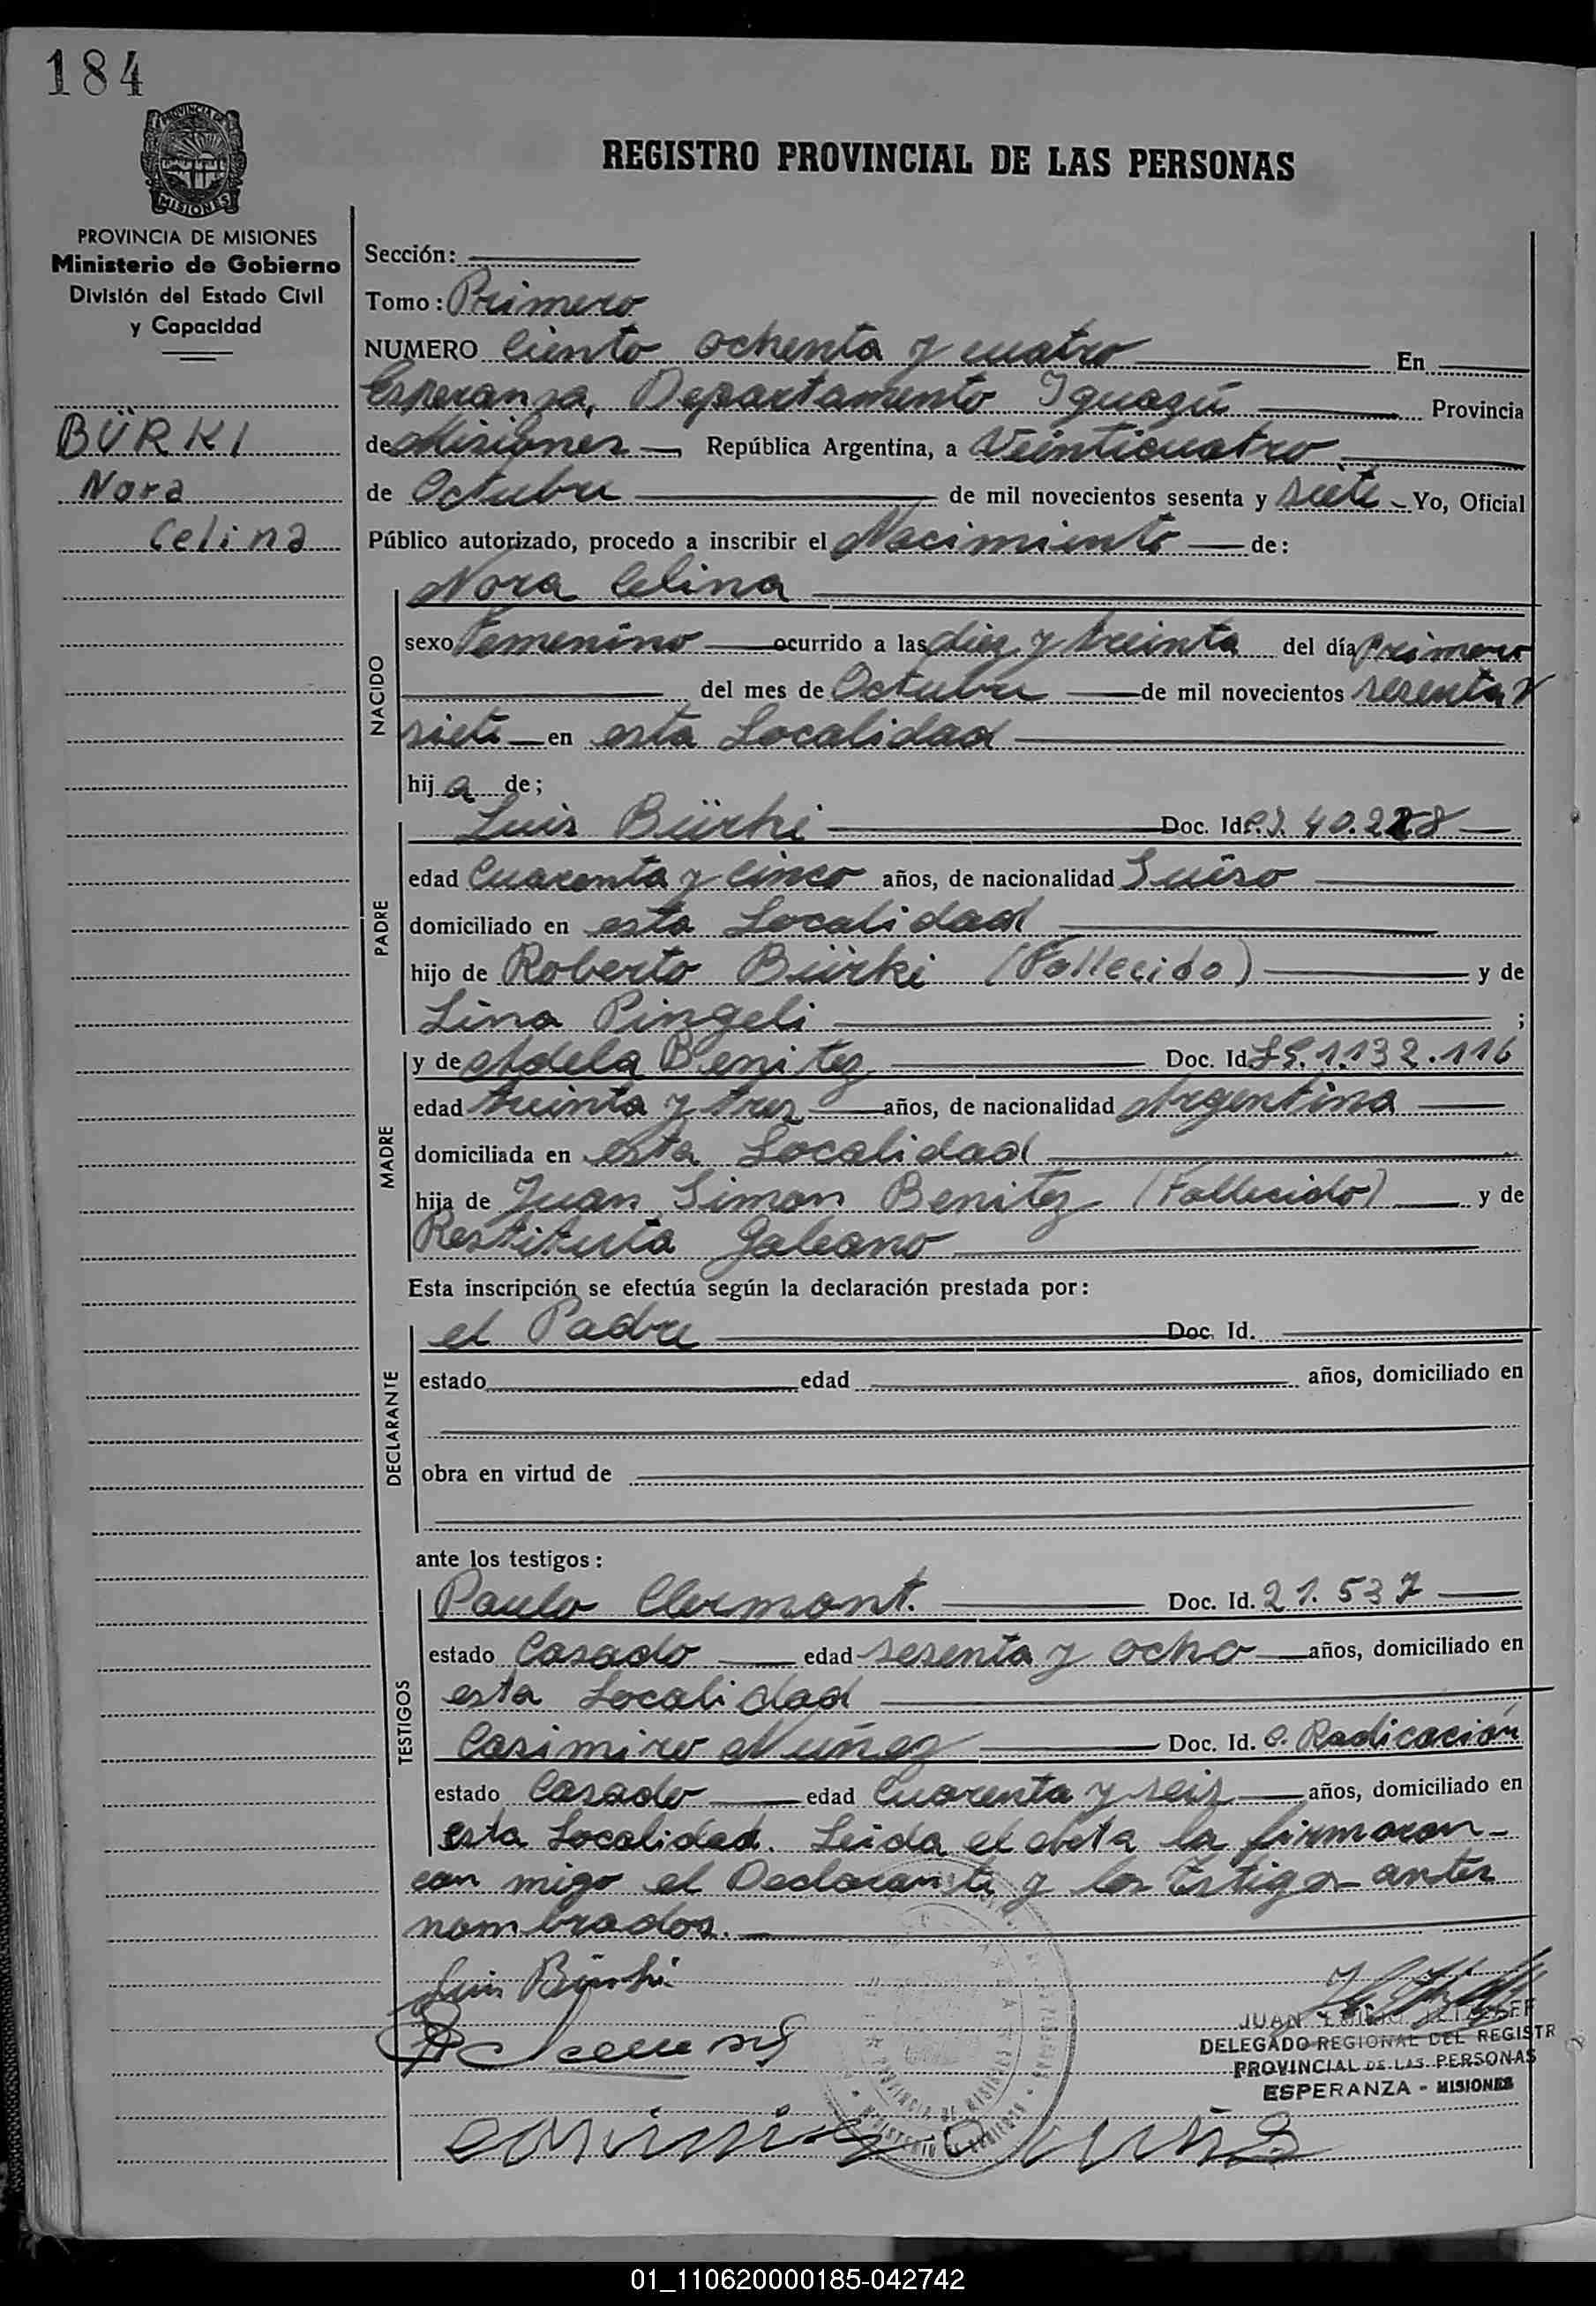 184
PROVINCIA DE
MISIONES
REGISTRO PROVINCIAL DE LAS PERSONAS
PROVINCIA DE MISIONES
Ministerio de Gobierno
División del Estado Civil
y Capacidad
BÜRKI
Nora
Celina
Sección:
Tomo: Primero
NUMERO Ciento ochenta y cuatro En
Esperanza, Departamento Iguazú Provincia
de Misiones República Argentina, a Veinticuatro
de Octubre de mil novecientos sesenta y siete Yo, Oficial
Público autorizado, procedo a inscribir el Nacimiento de:
NACIDO
Nora Celina
sexo Femenino ocurrido a las diez y treinta del día primero
del mes de Octubre de mil novecientos sesenta y
siete en esta Localidad
hija de;
PADRE
Luis Bürki Doc. Id. C.I. 40.228
edad Cuarenta y cinco años, de nacionalidad Suiso
domiciliado en esta Localidad
hijo de Roberto Bürki (Fallecido) y de
Lina Pingeli ;
MADRE
y de Adela Benitez Doc. Id. 1.132.116
edad treinta y tres años, de nacionalidad Argentina
domiciliada en esta Localidad
hija de Juan Simon Benitez (Fallecido) y de
Restituta Galeano
Esta inscripción se efectúa según la declaración prestada por:
DECLARANTE
el Padre Doc. Id.
estado edad años, domiciliado en
obra en virtud de
ante los testigos:
TESTIGOS
Paulo Clermont. Doc. Id. 21.537
estado Casado edad sesenta y ocho años, domiciliado en
esta Localidad
Casimiro Nuñez Doc. Id. C. Radicación
estado Casado edad Cuarenta y seis años, domiciliado en
esta Localidad. Leida el acta la firmaron
con migo el Declarante y los testigos antes
nombrados.
Luis Bürki
JUAN
DELEGADO REGIONAL DEL REGISTR
PROVINCIAL DE LAS PERSONAS
ESPERANZA - MISIONES
PROVINCIA DE MISIONES
MINISTERIO DE GOBIERNO
01_110620000185-042742